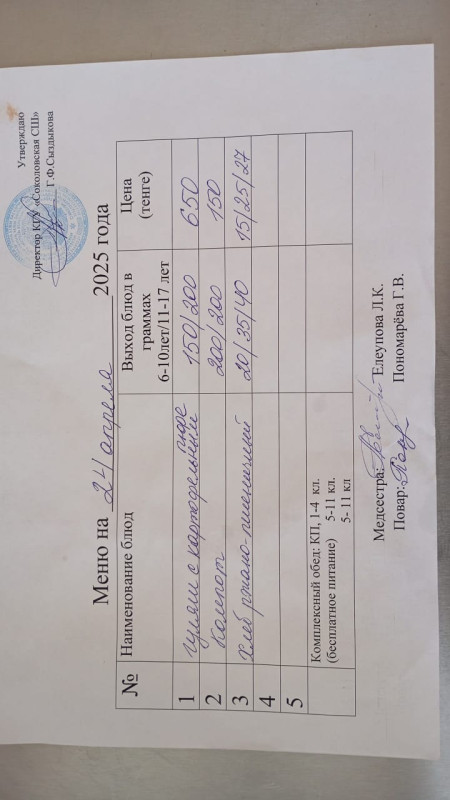 Утверждаю
Директор КГУ «Соколовская СШ»
Г.Ф.Сыздыкова
Меню на 24 апреля 2025 года
№ Наименование блюд Выход блюд в граммах 6-10лет/11-17 лет Цена (тенге)
1 гуляш с картофельным пюре 150/200 650
2 Компот 200/200 150
3 Хлеб ржано-пшеничный 20/35/40 15/25/27
4
5
Комплексный обед: КП, 1-4 кл.
(бесплатное питание) 5-11 кл.
5- 11 кл
Медсестра: Елеупова Л.К.
Повар: Пономарёва Г.В.